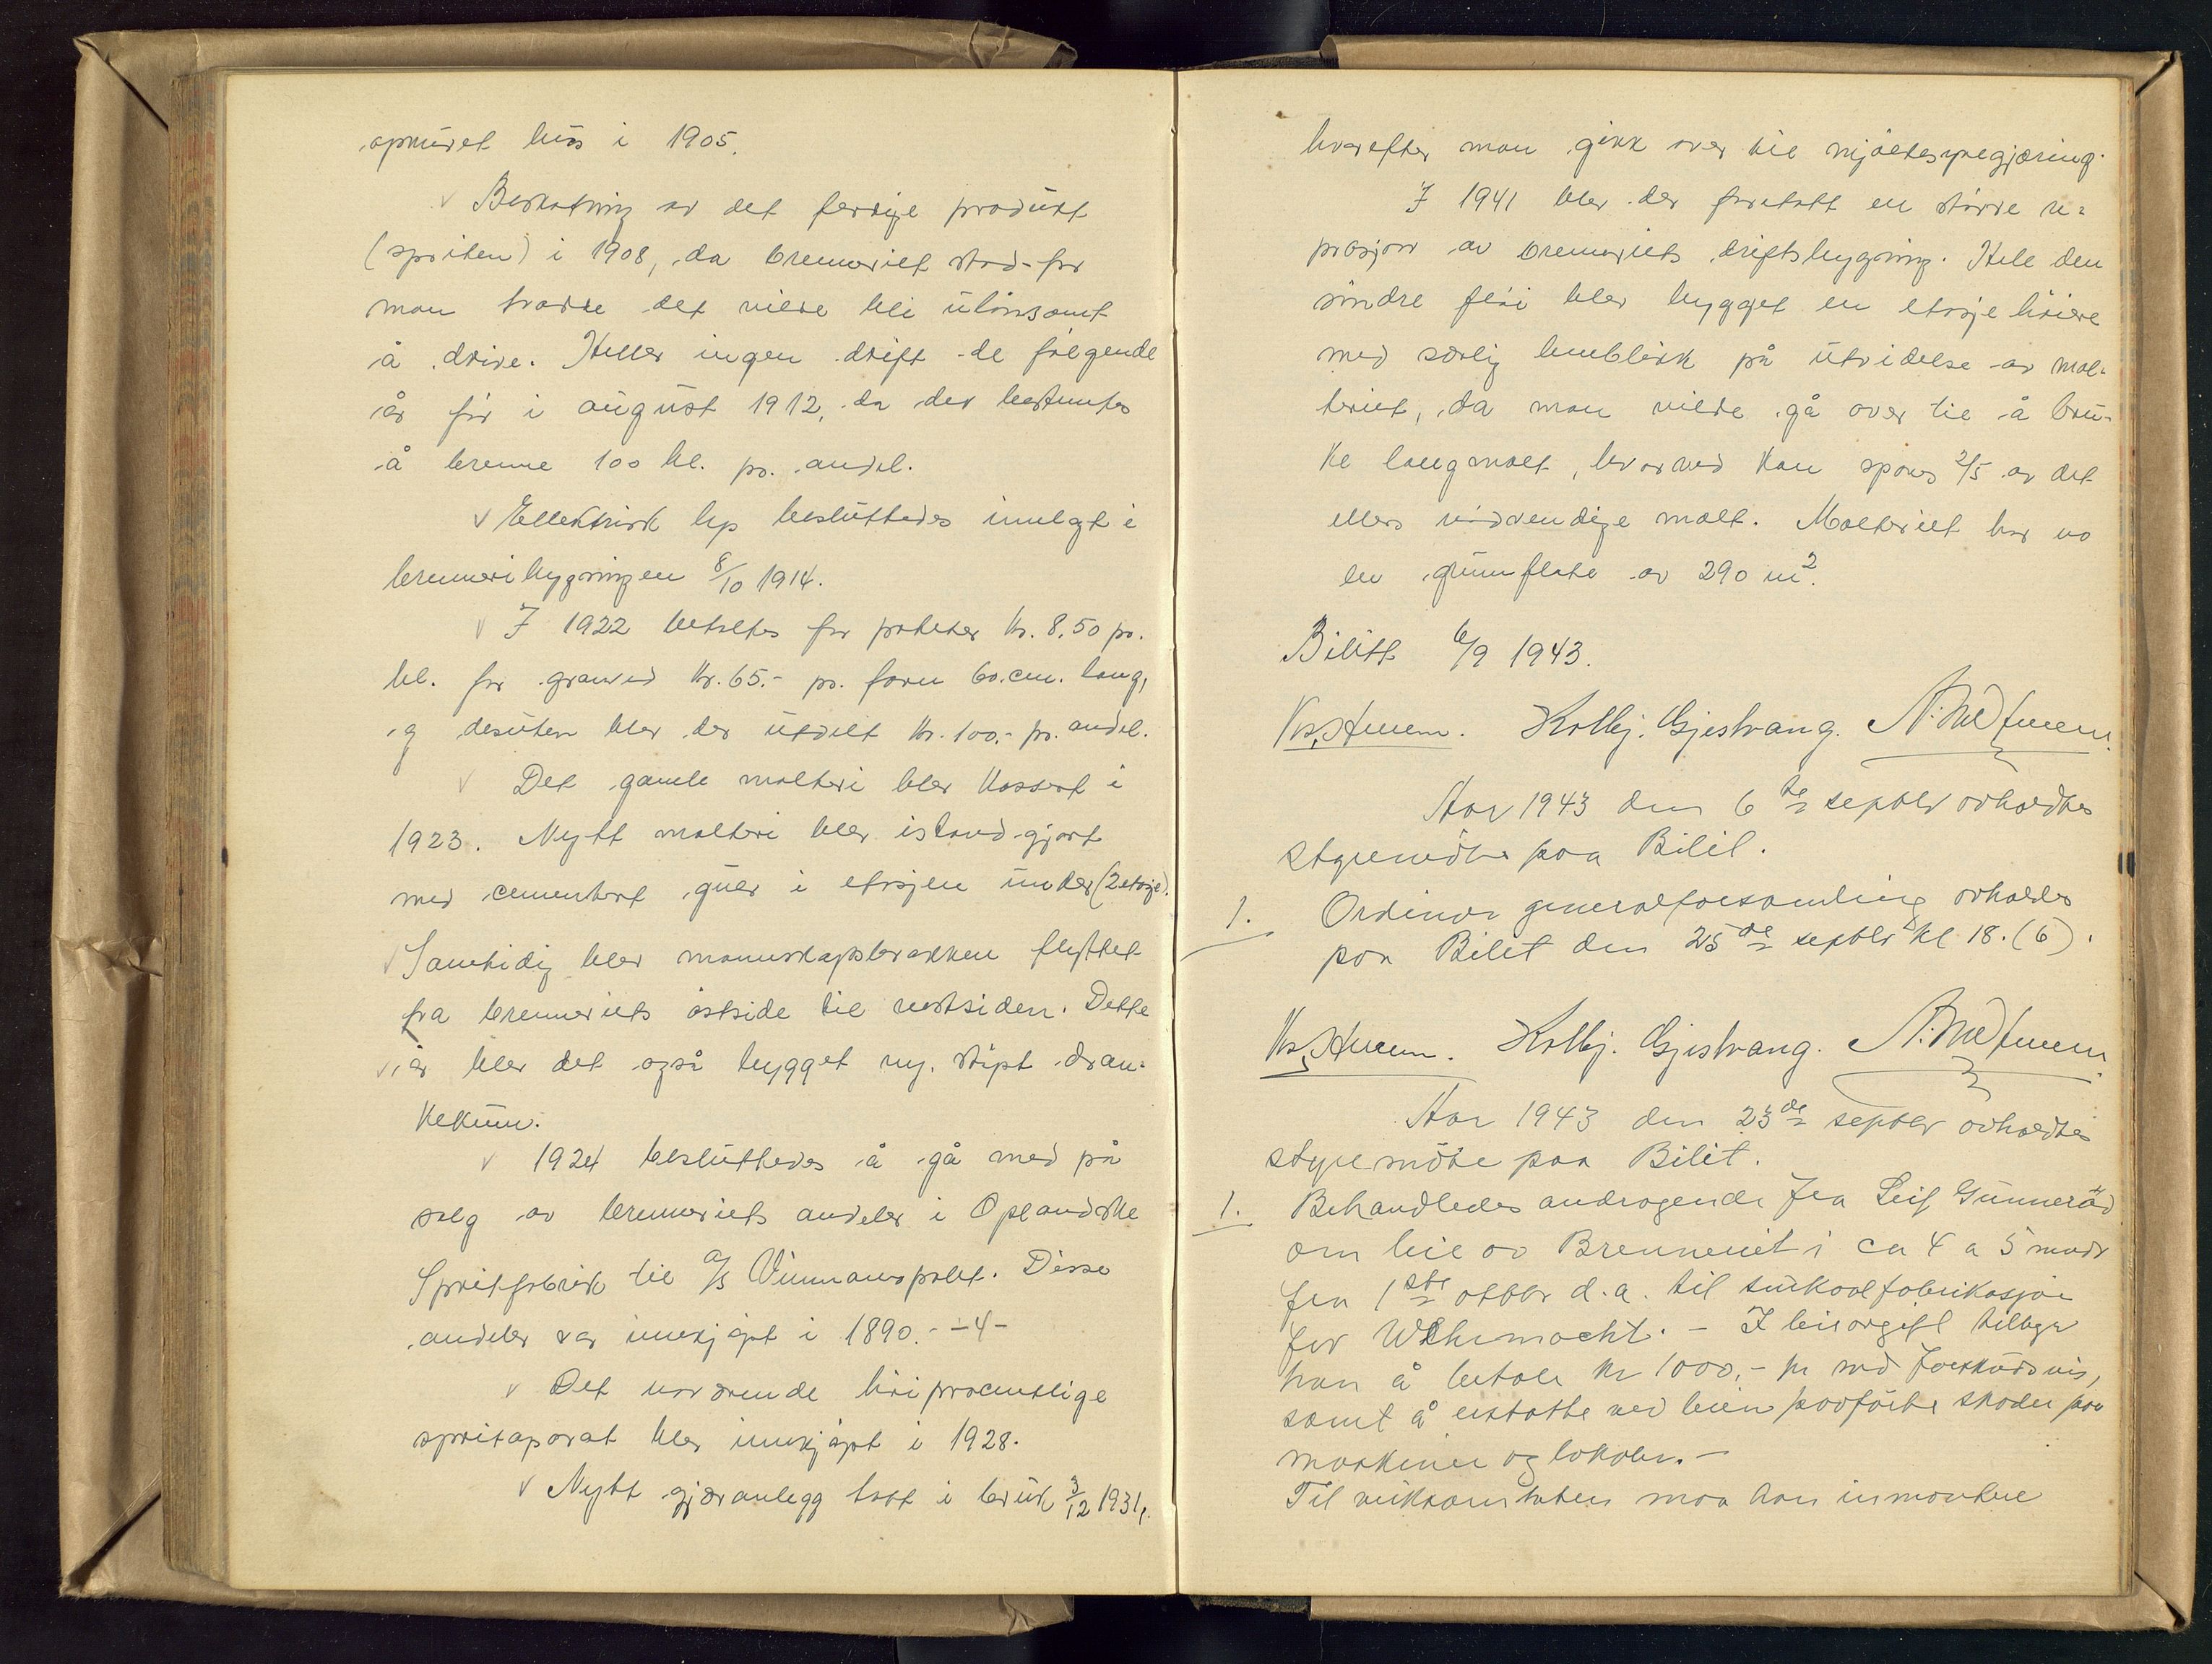 opmuret hus i 1905.
Beskatning av det ferdige produkt
(spriten) i 1908, da brenneriet stod for
man trodde det vilde bli ulönsomt
å drive. Heller ingen drift de fölgende
år för i august 1912, da der bestemtes
å brenne 100 hl. pr. andel.
Ellektrisk lys besluttedes innlagt i
brenneribygningen 8/10 1914.
I 1922 betaltes for poteter kr. 8,50 pr.
hl. for granved kr. 65.- pr. favn 60.cm. lang,
og desuten blev der utdelt kr. 100,- pr. andel.
Det gamle malteri blev kassert i
1923. Nytt malteri blev istand-gjort
med cementert gulv i etasjen under (2 etasje).
Samtidig blev mannskapsbrakken flyttet
fra brenneriets östside til vestsiden. Dette
år blev det også bygget ny, stöpt dran-
kekum.
1924 besluttedes å gå med på
salg av brenneriets andeler i Oplandske
Spritfabrik til A/S Vinmonopolet. Disse
andeler var innkjöpt i 1890. - -4-
Det nuværende höiprocentlige
spritaparat blev innkjöpt i 1928.
Nytt gjæranlegg tatt i bruk 3/12 1931,
hvorefter man gikk over til mjöltesyregjæring.
I 1941 blev der foretatt en större re-
prasjon av brenneriets driftsbygning. Hele den
söndre flöi blev bygget en etasje höiere
med særlig henblikk på utvidelse av mal-
teriet, da man vilde gå over til å bru-
ke langmalt, hvorved kan spares 2/5 av det
ellers nödvendige malt. Malteriet har no
en grunnflate av 290 m2.
Bilitt 6/9 1943.
Kolbj. Gjestvang.
Aar 1943 den 6te septbr avholdtes
styremöte paa Bilit.
1. Ordinær generalforsamling avholdes
paa Bilit den 25de septbr kl. 18. (6).
Kolbj. Gjestvang.
Aar 1943 den 23de septbr avholdtes
styremöte paa Bilit.
1. Behandledes andragende fra Leif Gunneröd
om leie av Brenneriet i ca 4 a 5 mndr
fra 1ste oktbr d.a. til fabrikasjon
for Wehrmacht. - I leieavgift tilbyr
han å betale kr 1000,- pr mnd forskudsvis,
samt å erstatte ved leien paaförte skader paa
maskiner og lokaler. -
Til maa han inmontere